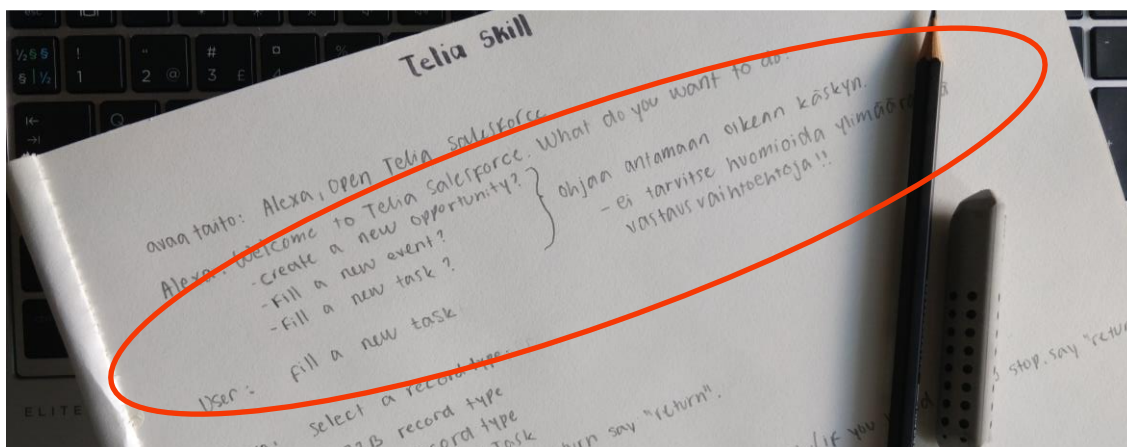 Telia Skill
avaa taito: Alexa, open Telia Salesforce.
Alexa: Welcome to Telia Salesforce. What do you want to do?
-create a new opportunity?
-Fill a new event?
-Fill a new task?
ohjaa antamaan oikean käskyn.
- ei tarvitse huomioida
vastausvaihtoehtoja!!
User: fill a new task.
select a record type:
record type
record type
Task
return say "return".
if you
stop. say "return
ELITE